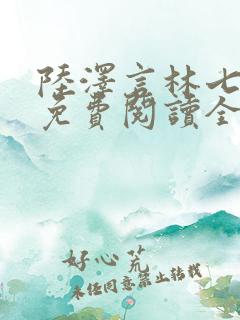 陸澤言林七
免費閱讀全
好心荒
未经同意禁止转载